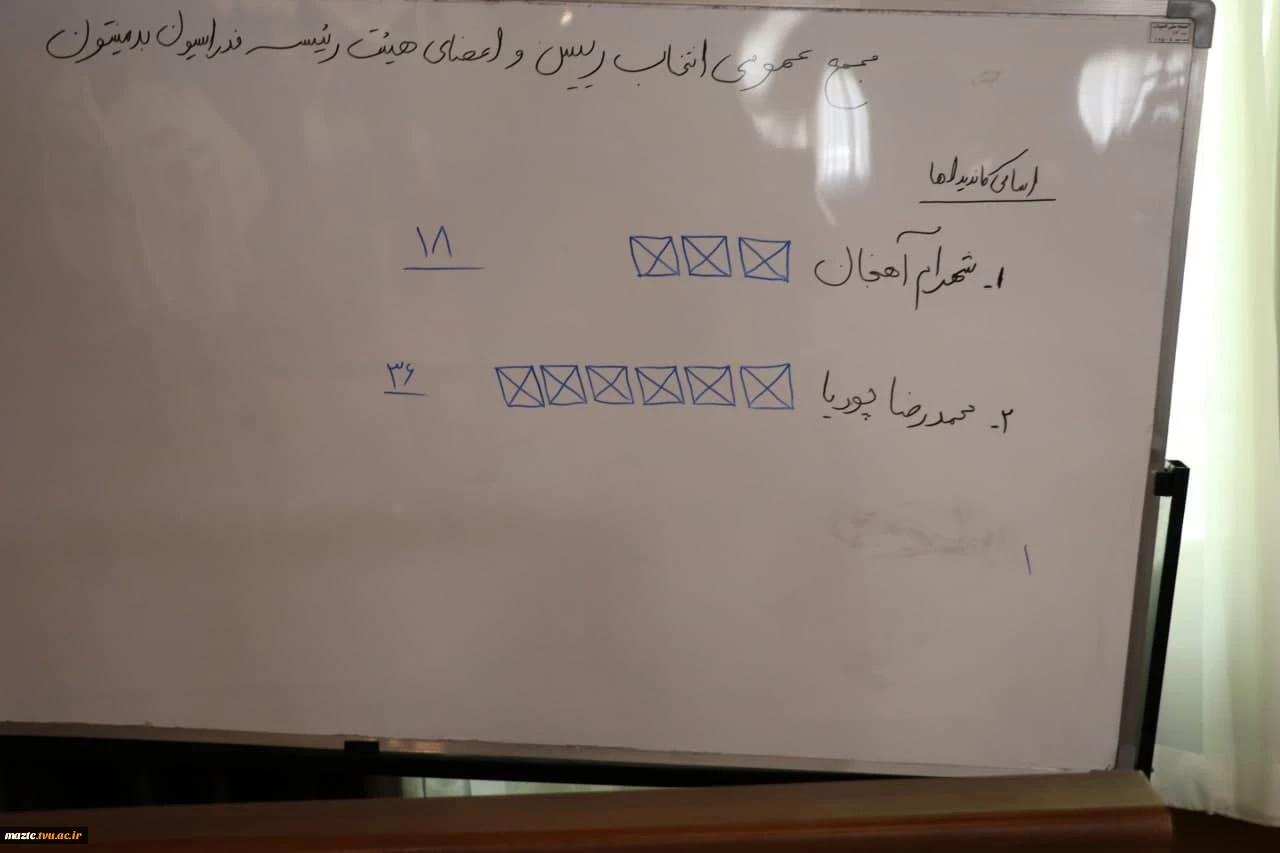 مجمع عمومی انتخاب رییس و اعضای هیئت رئیسه فدراسیون بدمینتون
اسامی کاندیداها
۱- شهرام آهنجان ۱۸
۲- محمدرضا پوریا ۳۶
۱
maztc.tvu.ac.ir